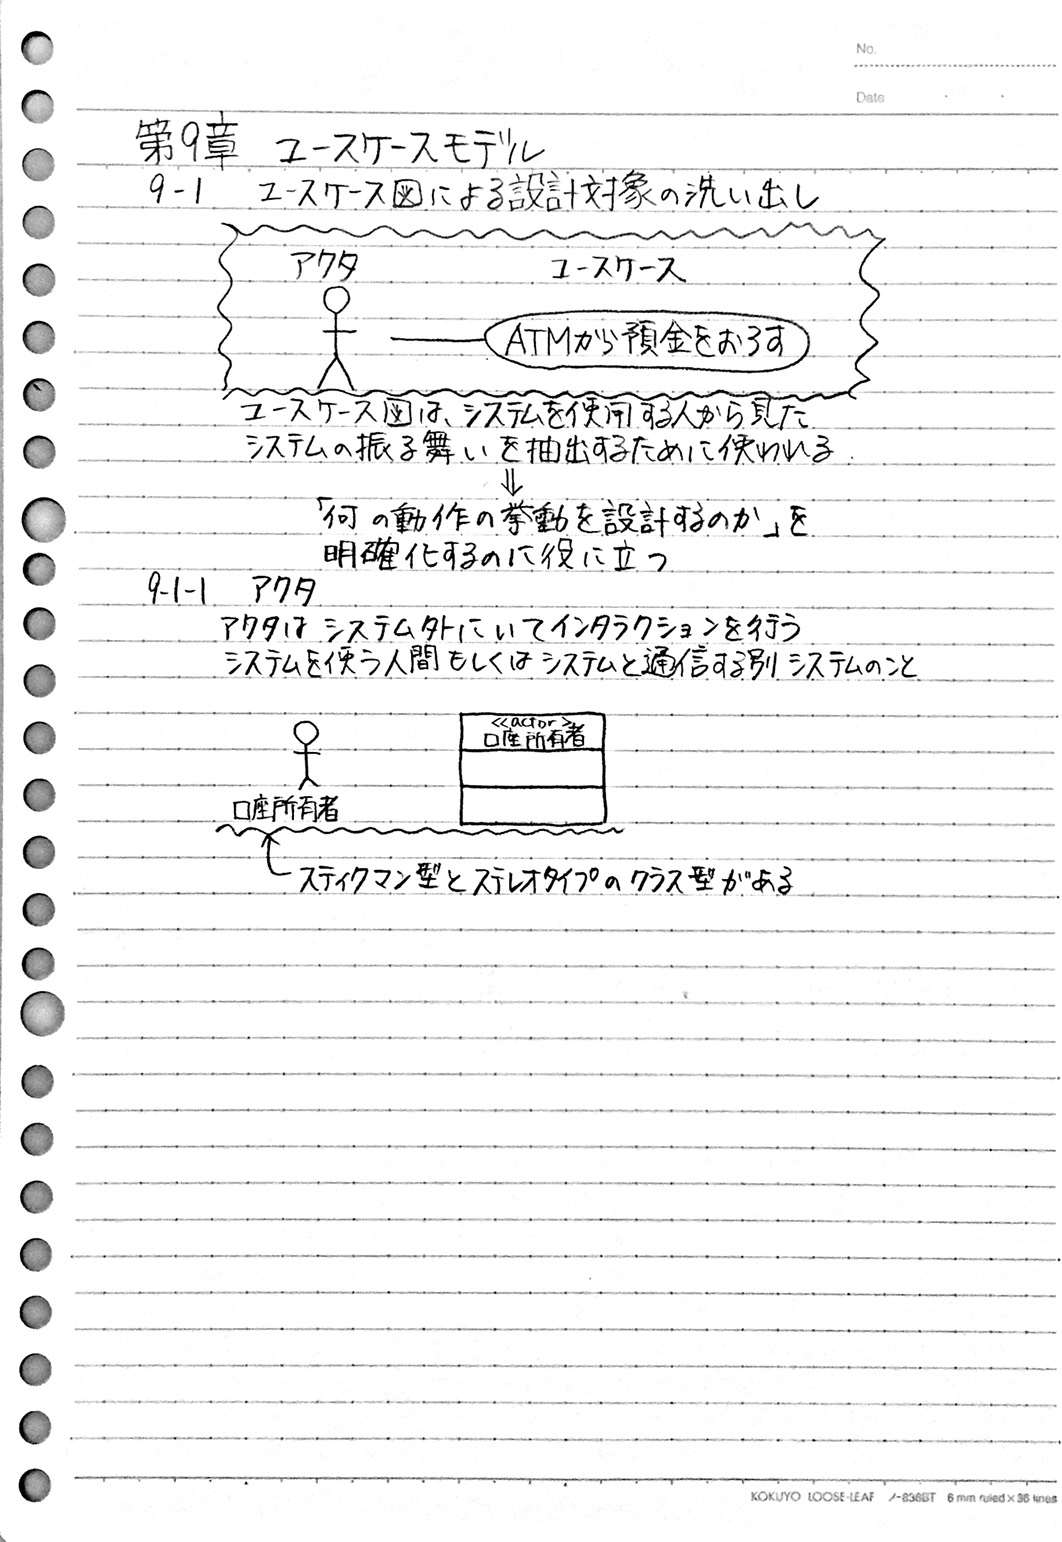 No.
Date
第9章 ユースケースモデル
9-1 ユースケース図による設計対象の洗い出し
アクタ ユースケース
ATMから預金をおろす
ユースケース図は、システムを使用する人から見た
システムの振る舞いを抽出するために使われる.
⇓
「何の動作の挙動を設計するのか」を
明確化するのに役に立つ
9-1-1 アクタ
アクタはシステム外にいてインタラクションを行う
システムを使う人間もしくはシステムと通信する別システムのこと
<<actor>>
口座所有者
口座所有者
スティクマン型とステレオタイプのクラス型がある
KOKUYO LOOSE-LEAF ノ-836BT 6 mm ruled×36 lines